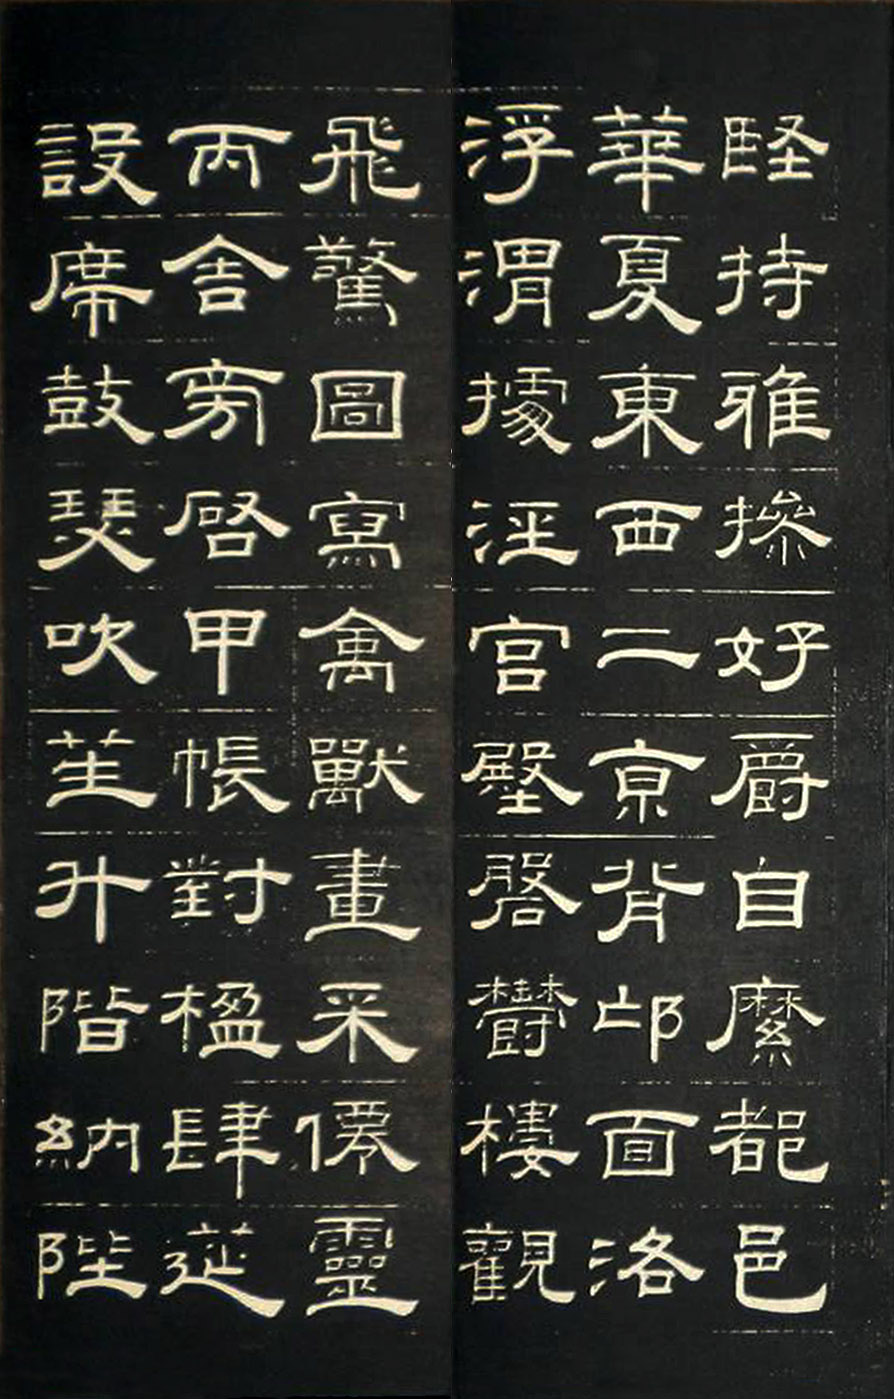 堅持雅摻好爵自縻都邑
華夏東西二亰背邙面洛
浮渭據涇宮壂盤欝樓觀
飛驚圖寫禽獸畫采僊靈
丙舍旁啓甲帳對楹肆筵
設席鼓瑟吹笙升階納陛